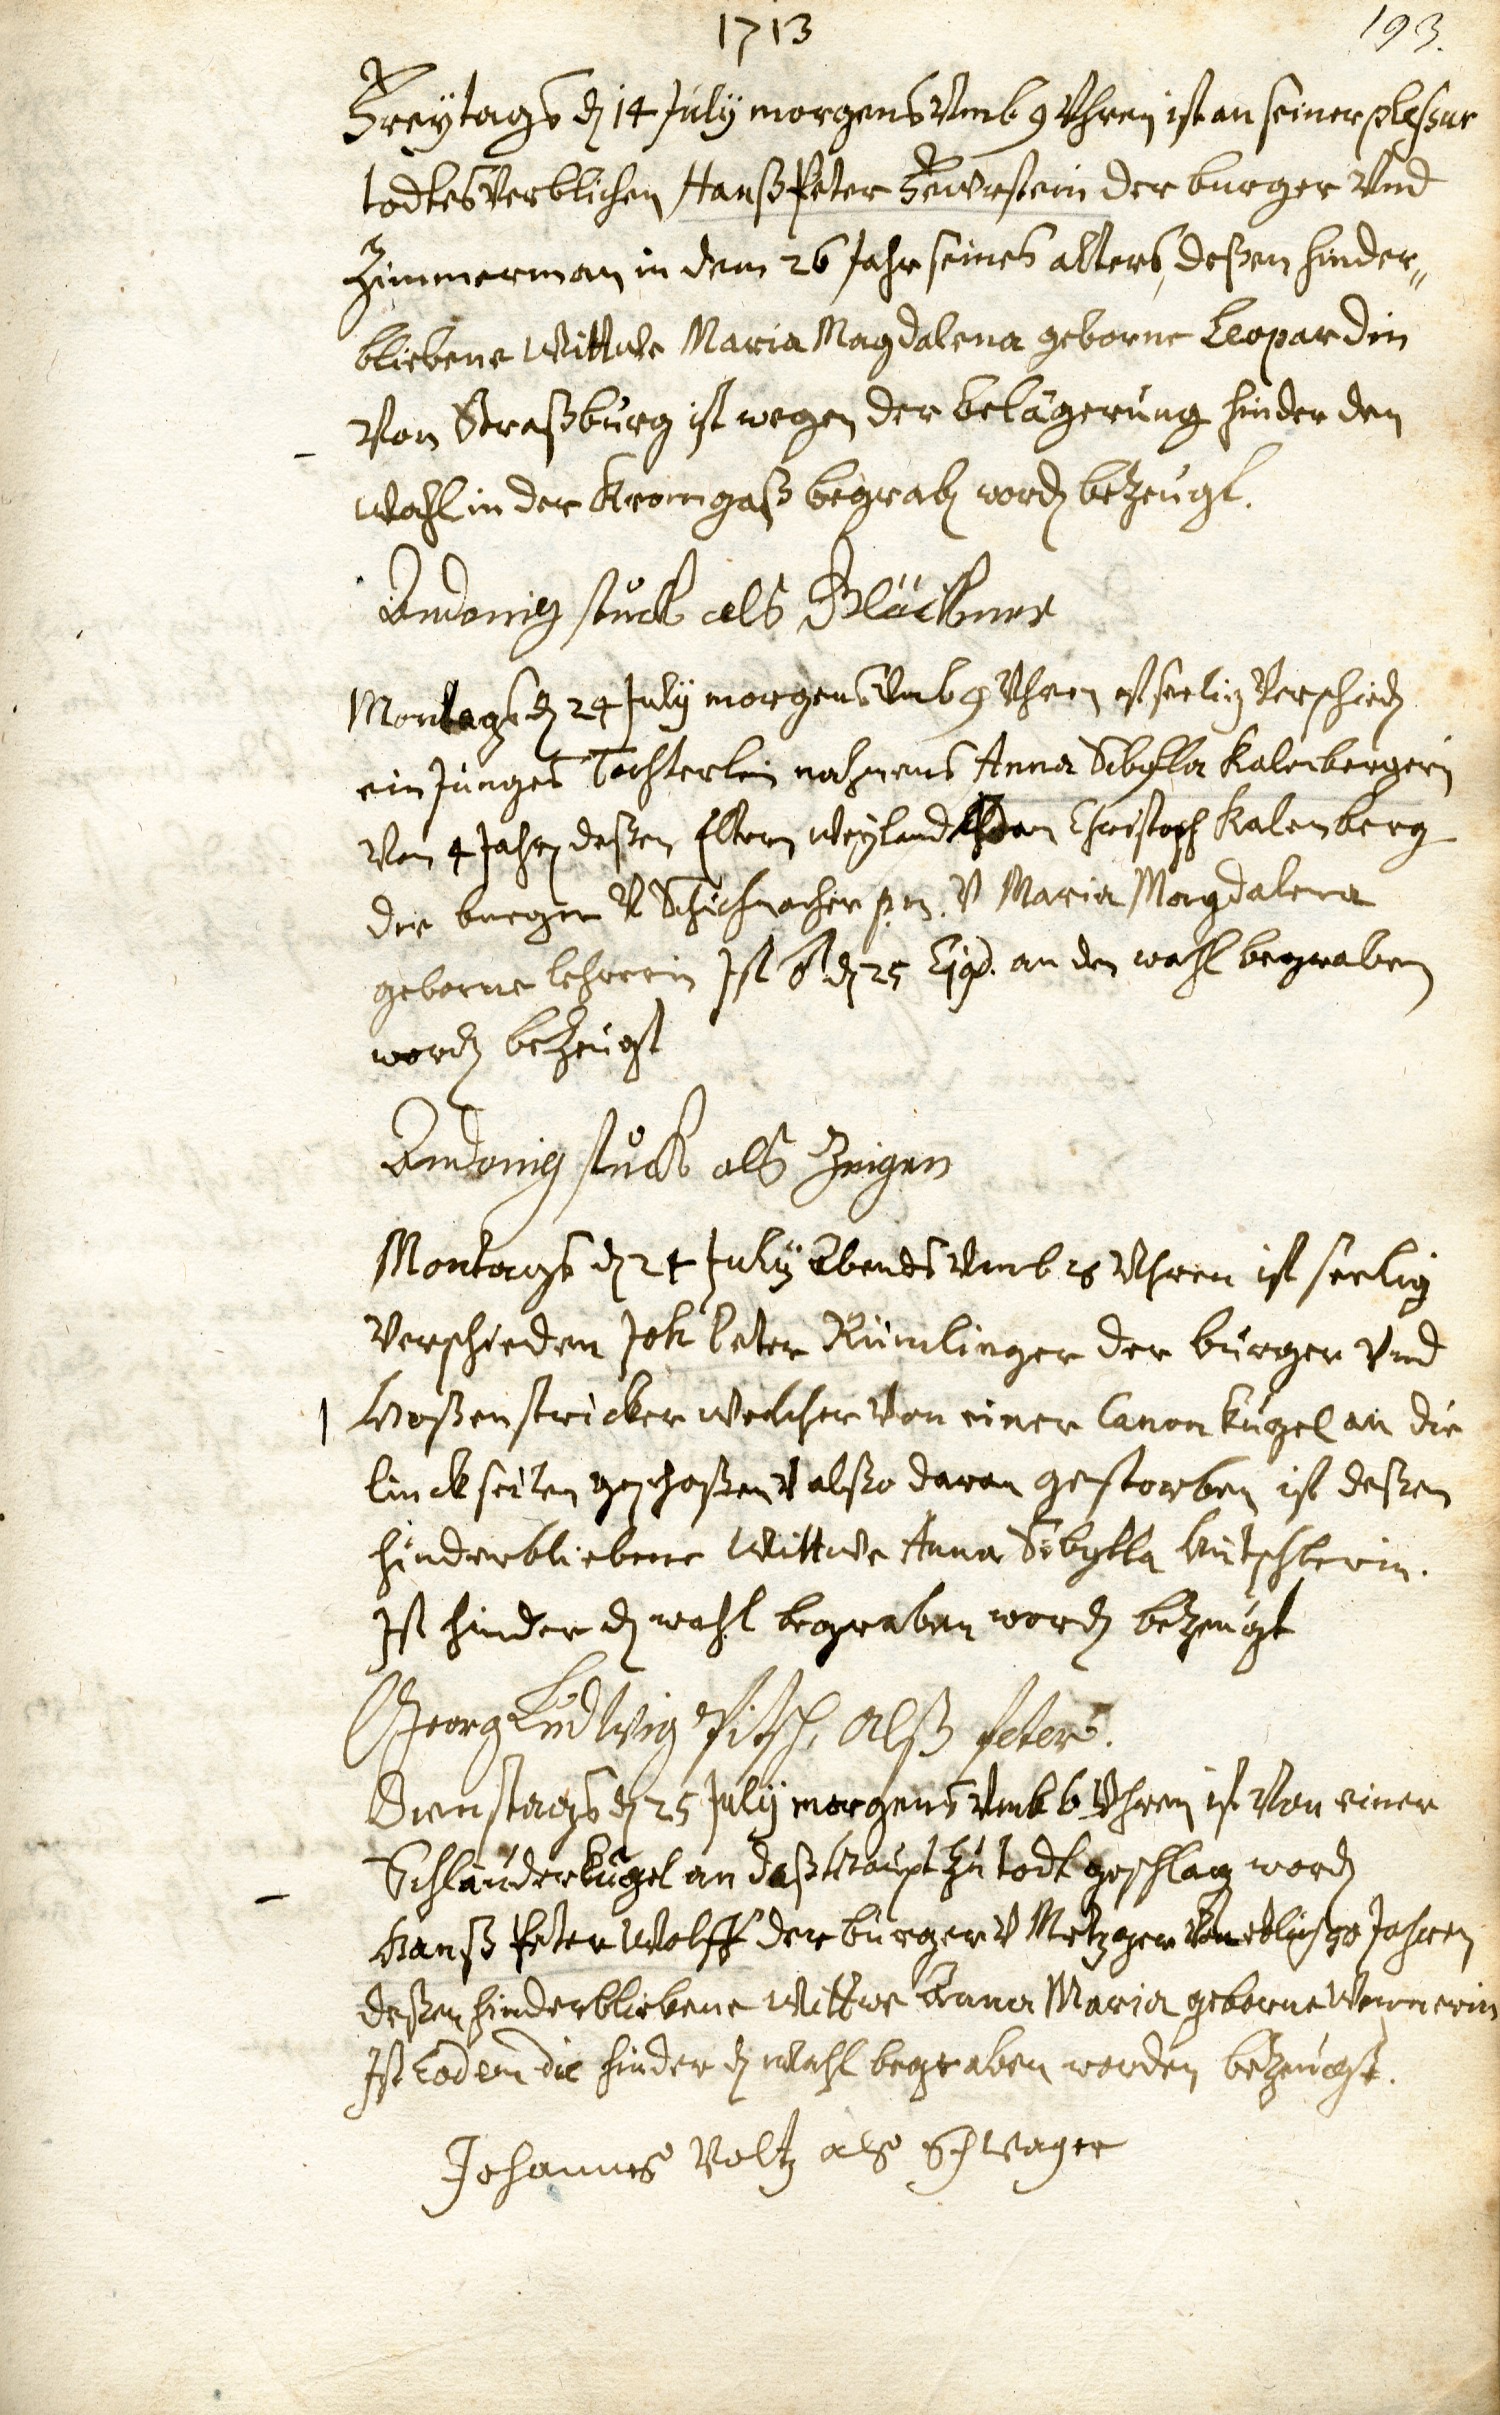 1713
193.
Freytags d 14 July morgens Vmb 9 Vhren ist an seiner plessur
todtes Verblichen Hanß Peter Feuerstein der burger Vnd
Zimmerman in dem 26 Jahr seines alters, deßen hinder„
bliebene Wittwe Maria Magdalena geborne Leopardin
Von Straßburg ist wegen der belägerung hinder den
Wahl in der Kromgaß begrab word bezeugt.
Andonig stuck als Glöckner
Montags d 24 July morgens Vmb 9 Vhren ist seelig Verschied
ein Junges Tochterlein nahmens Anna Sibylla Kalenbergerin
Von 4 Jahr deßen Eltern Weyland Christoph Kalenberg
der burger V Schuchmacher p.m. V Maria Magdalena
geborne Lehrerin Ist d 25 an den wahl begraben
word bezeugt
Andonig stuck als Zeigen
Montags d 24 July Abends Vmb Vhren ist seelig
Verschieden Joh Peter Rümlinger der burger Vnd
Hoßenstricker Welcher Von einer Canon kugel an die
linck seiten geschoßen V alßo daran gestorben ist deßen
hinderbliebene Wittwe Anna Sibylla
Ist hinder d wahl begraben word bezeugt
Georg Ludwig Pitsch, Alß Peter.
Dienstags d 25 July morgens Vmb 6 Vhren ist Von einer
Schläuderkugel an daß Haupt zu todt geschlag word
Hanß Peter Wolff der burger V Metzger Von etlich 50 Jahren
deßen hinderbliebene Wittwe Anna Maria geborne Wernerin
Ist Eodem die hinder d Wahl begraben worden bezeugt.
Johannes Voltz als Schwager